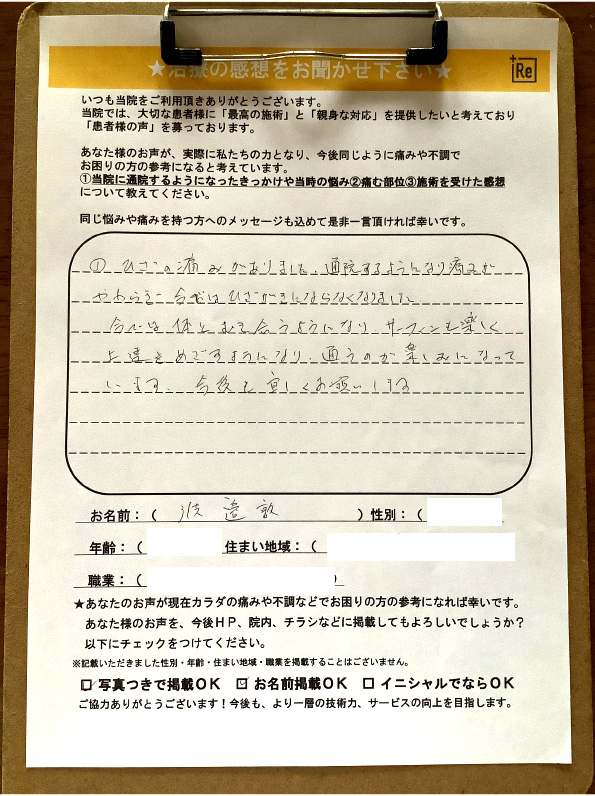 ★治療の感想をお聞かせ下さい★
Re
いつも当院をご利用頂きありがとうございます。
当院では、大切な患者様に「最高の施術」と「親身な対応」を提供したいと考えており
「患者様の声」を募っております。
あなた様のお声が、実際に私たちの力となり、今後同じように痛みや不調で
お困りの方の参考になると考えています。
①当院に通院するようになったきっかけや当時の悩み②痛む部位③施術を受けた感想
について教えてください。
同じ悩みや痛みを持つ方へのメッセージも込めて是非一言頂ければ幸いです。
① ひざの痛みがありました。通院するようになり痛みが
やわらぎ 今ではひざが気にならなくなりました。
今では体とむき合うようになり サーフィンも楽しく
上達をめざすようになり、通うのが楽しみになって
います。今後も宜しくお願いします
お名前：（ 渡 邉 敦 ）性別：（
年齢：（ 住まい地域：（
職業：（ ）
★あなたのお声が現在カラダの痛みや不調などでお困りの方の参考になれば幸いです。
あなた様のお声を、今後ＨＰ、院内、チラシなどに掲載してもよろしいでしょうか？
以下にチェックをつけてください。
※記載いただきました性別・年齢・住まい地域・職業を掲載することはございません。
☑写真つきで掲載ＯＫ ☑お名前掲載ＯＫ □イニシャルでならＯＫ
ご協力ありがとうございます！今後も、より一層の技術力、サービスの向上を目指します。